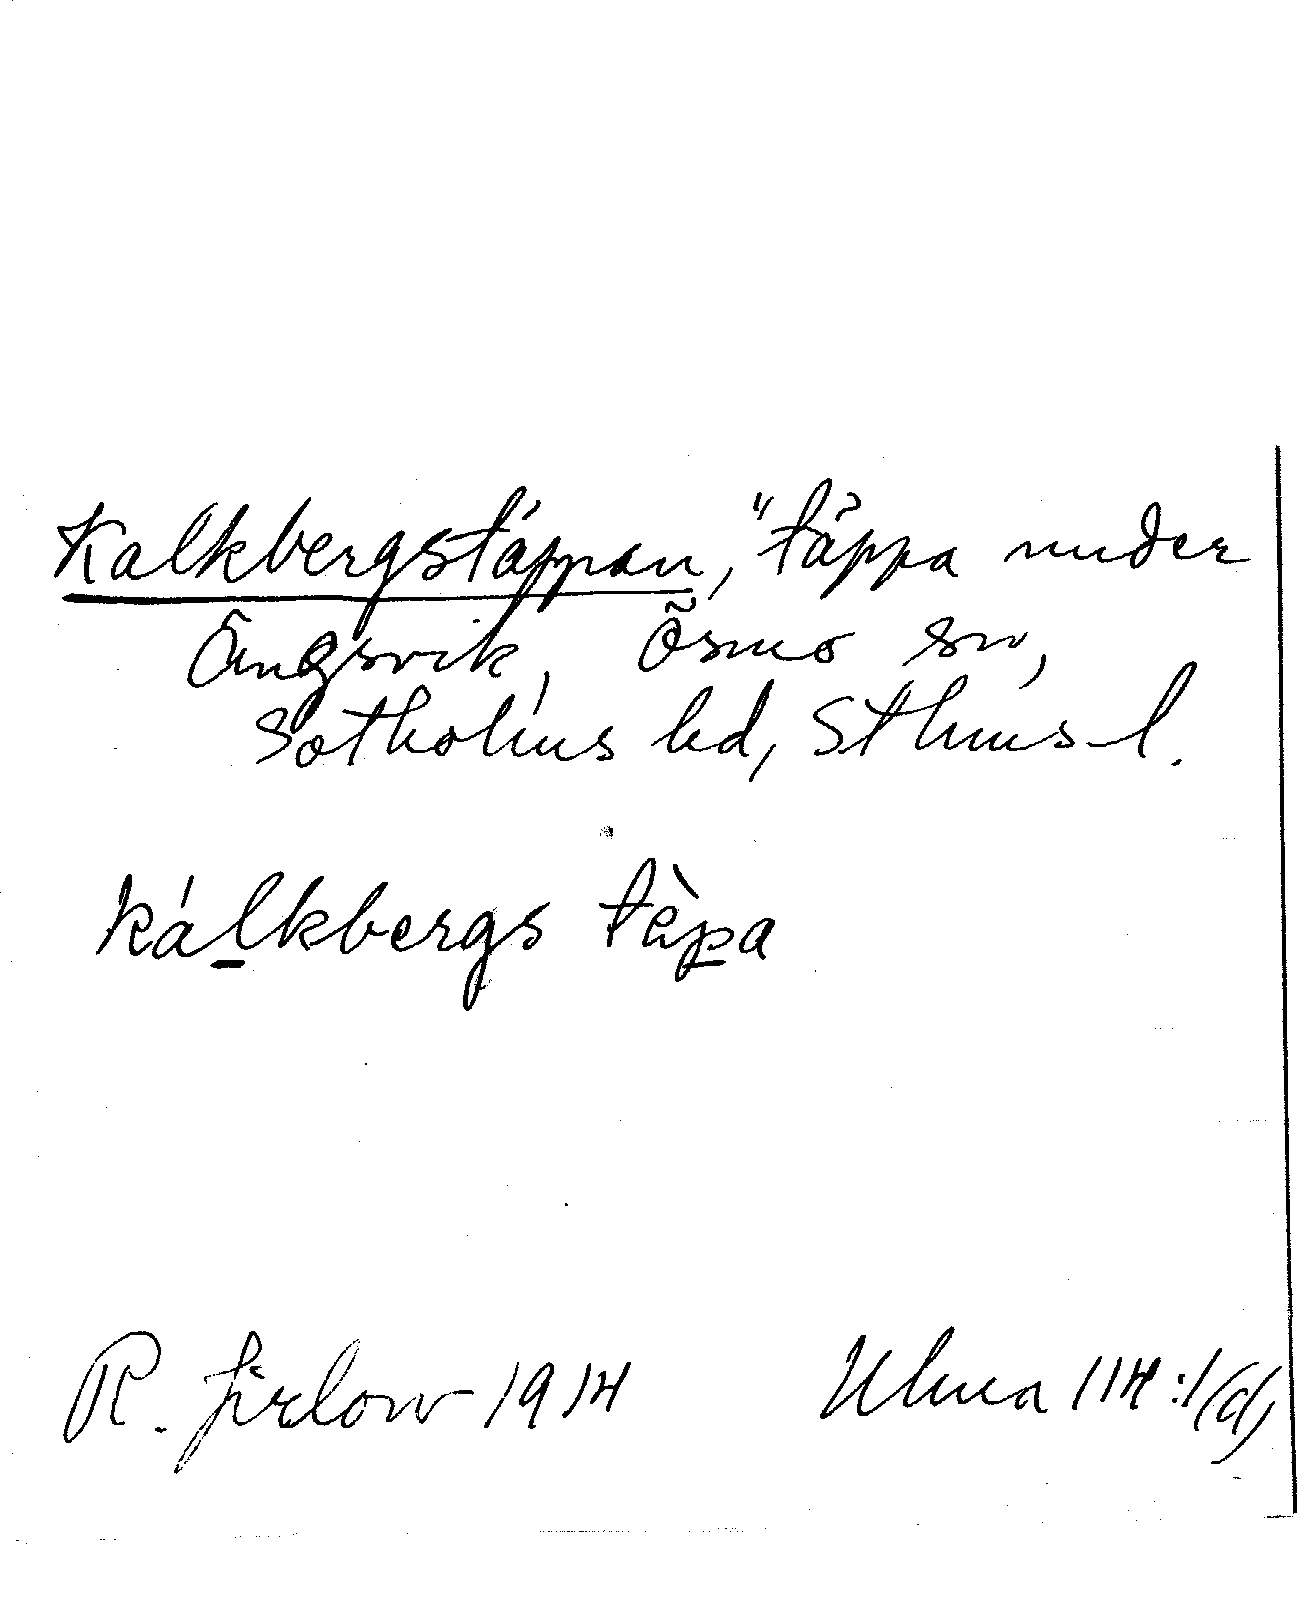 Kalkbergstäppan, täppa under
Ängsvik, Ösmo sn,
Sotholms hd, Sthms l.
kálkbergs tὲpa
R. Jirlow 1914
Ulma 114:1(d)